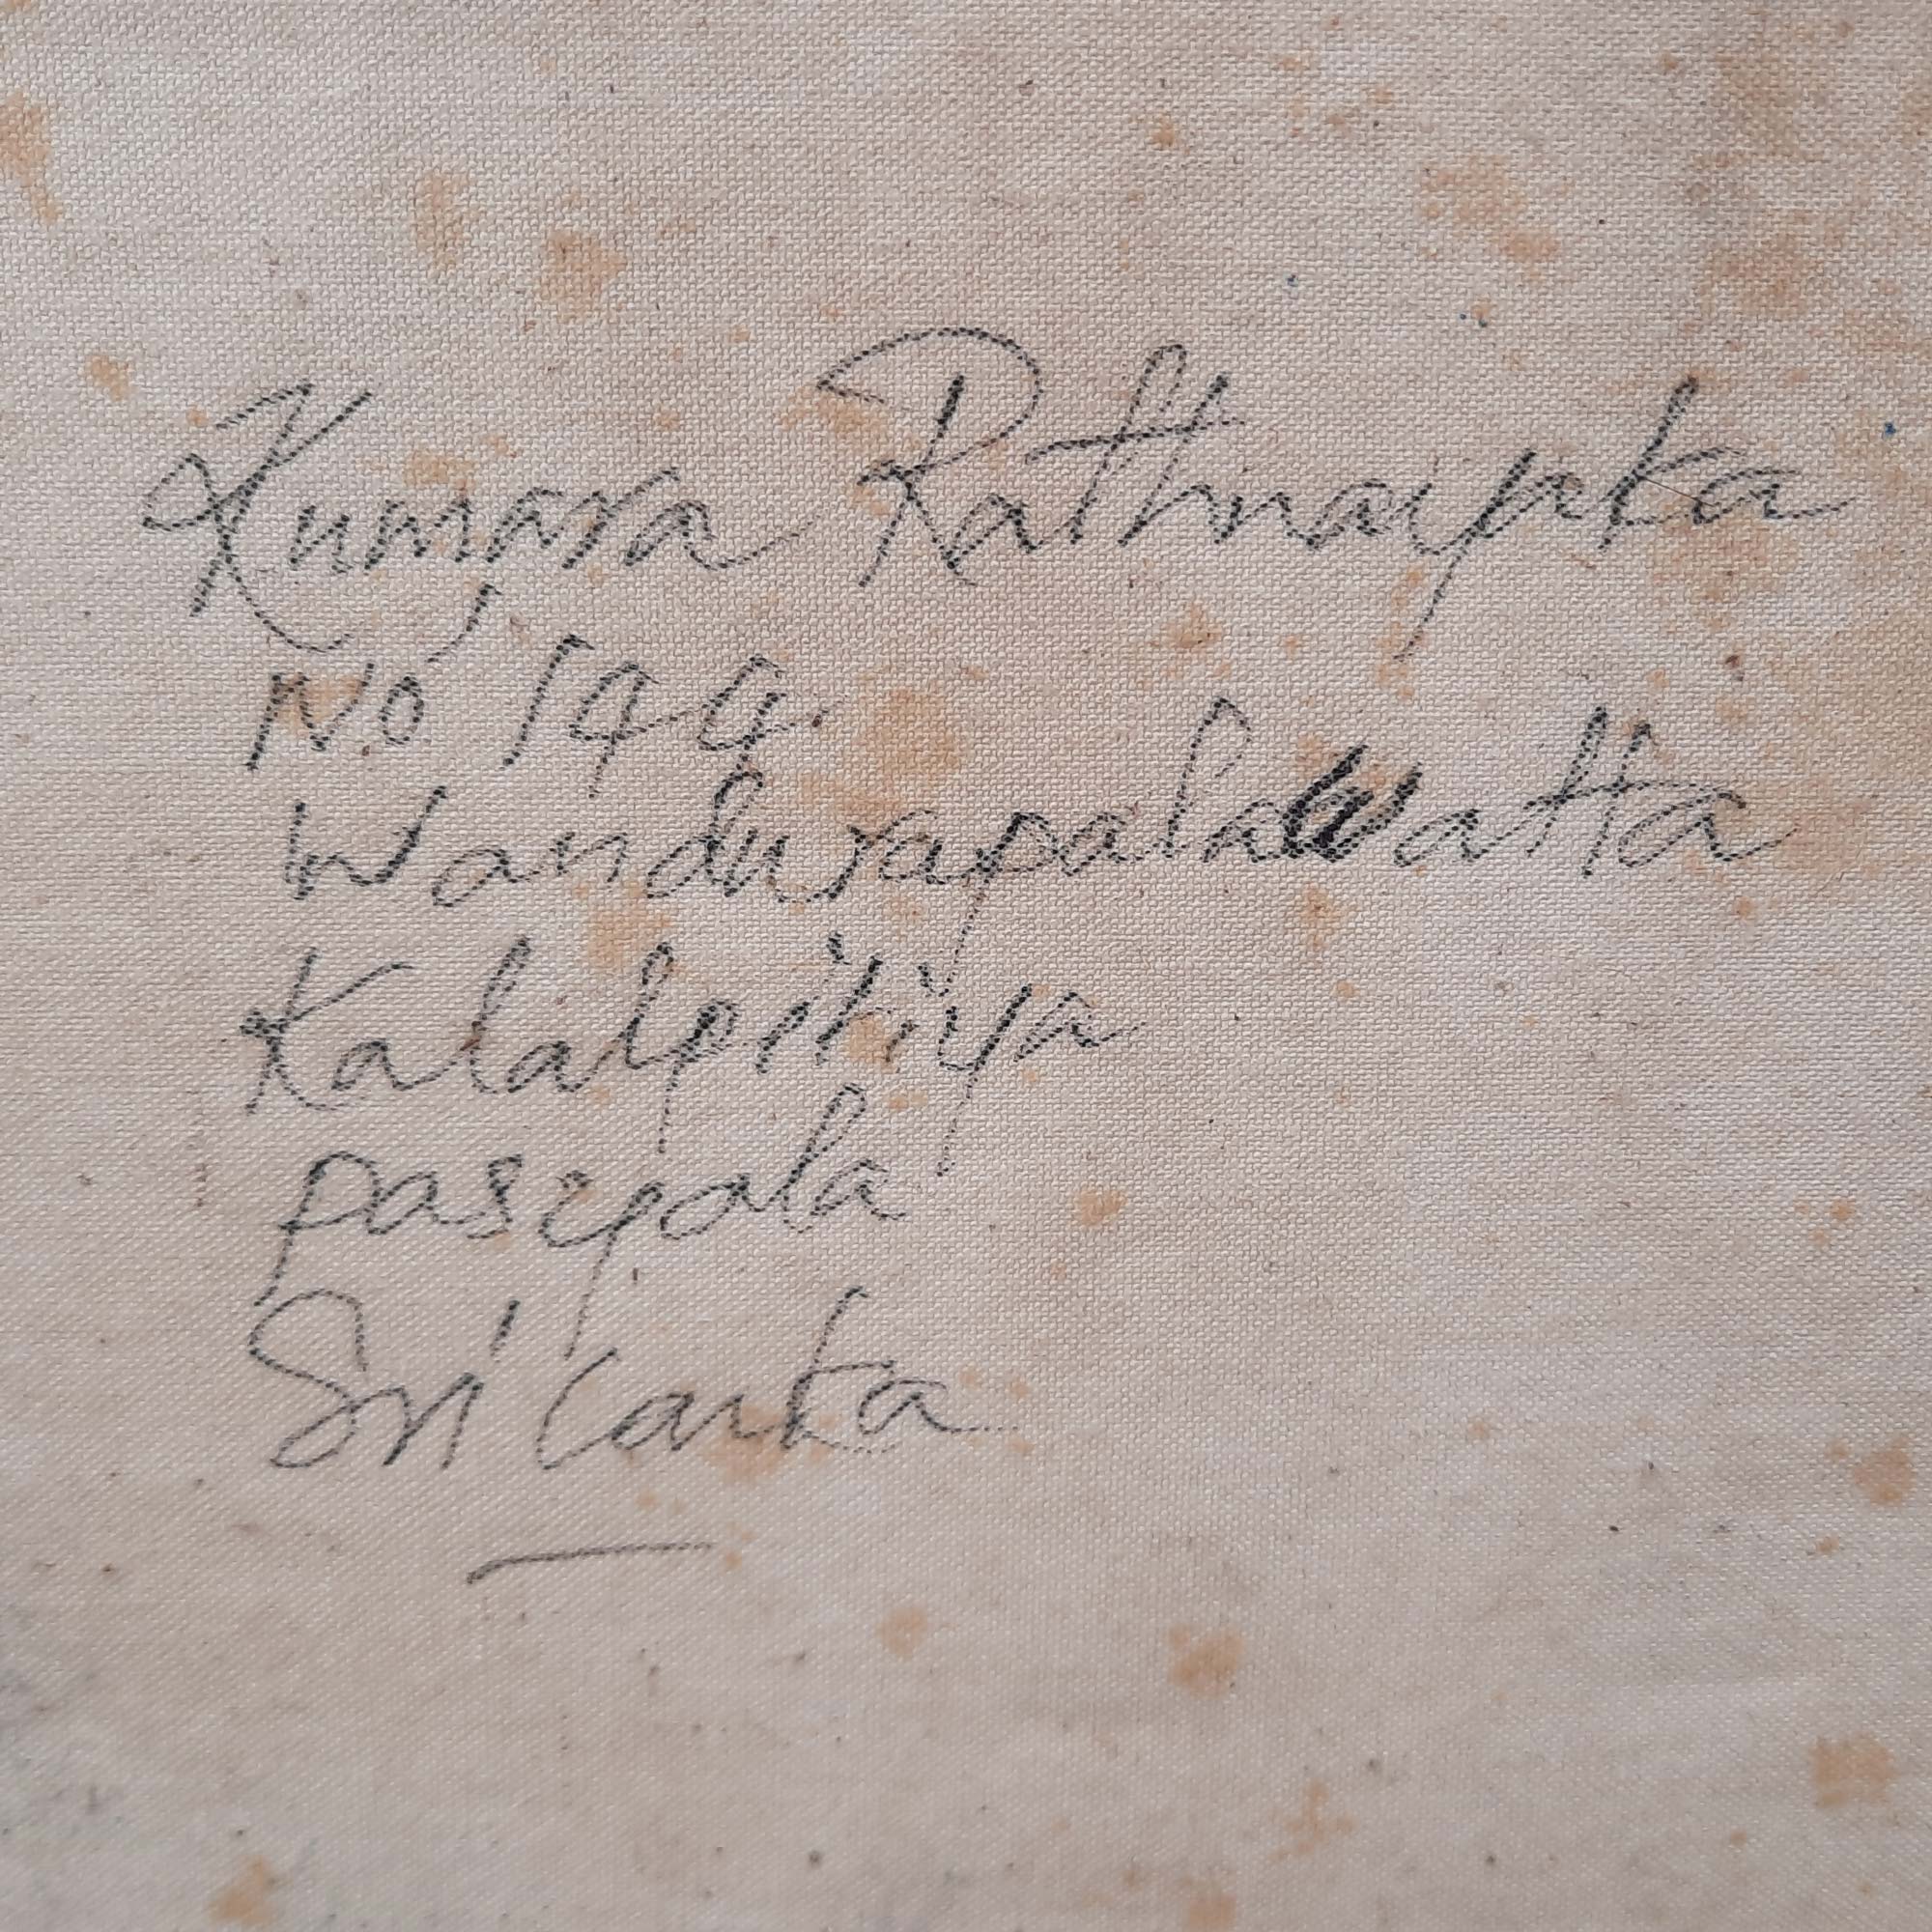 Kumara Rathnayaka
No 144
Wandurapalawatta
Kalalpitiya
Pasyala
Sri Lanka